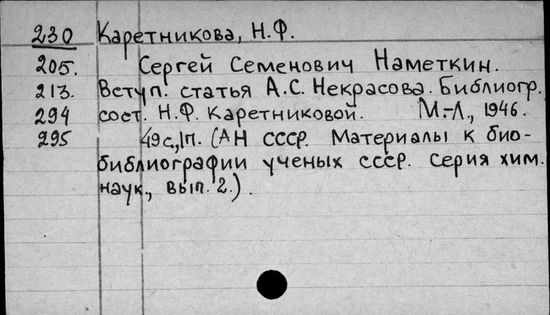 230 Каретникова, Н.Ф.
205. Сергей Семенович Наметкин.
213. Вступ. статья А.С. Некрасова. Библиогр.
294 сост. Н.Ф. Каретниковой. М.-Л., 1946.
295 49с., 1п. (АН СССР. Материалы к био-
библиографии ученых СССР. Серия хим.
наук., вып. 2.).